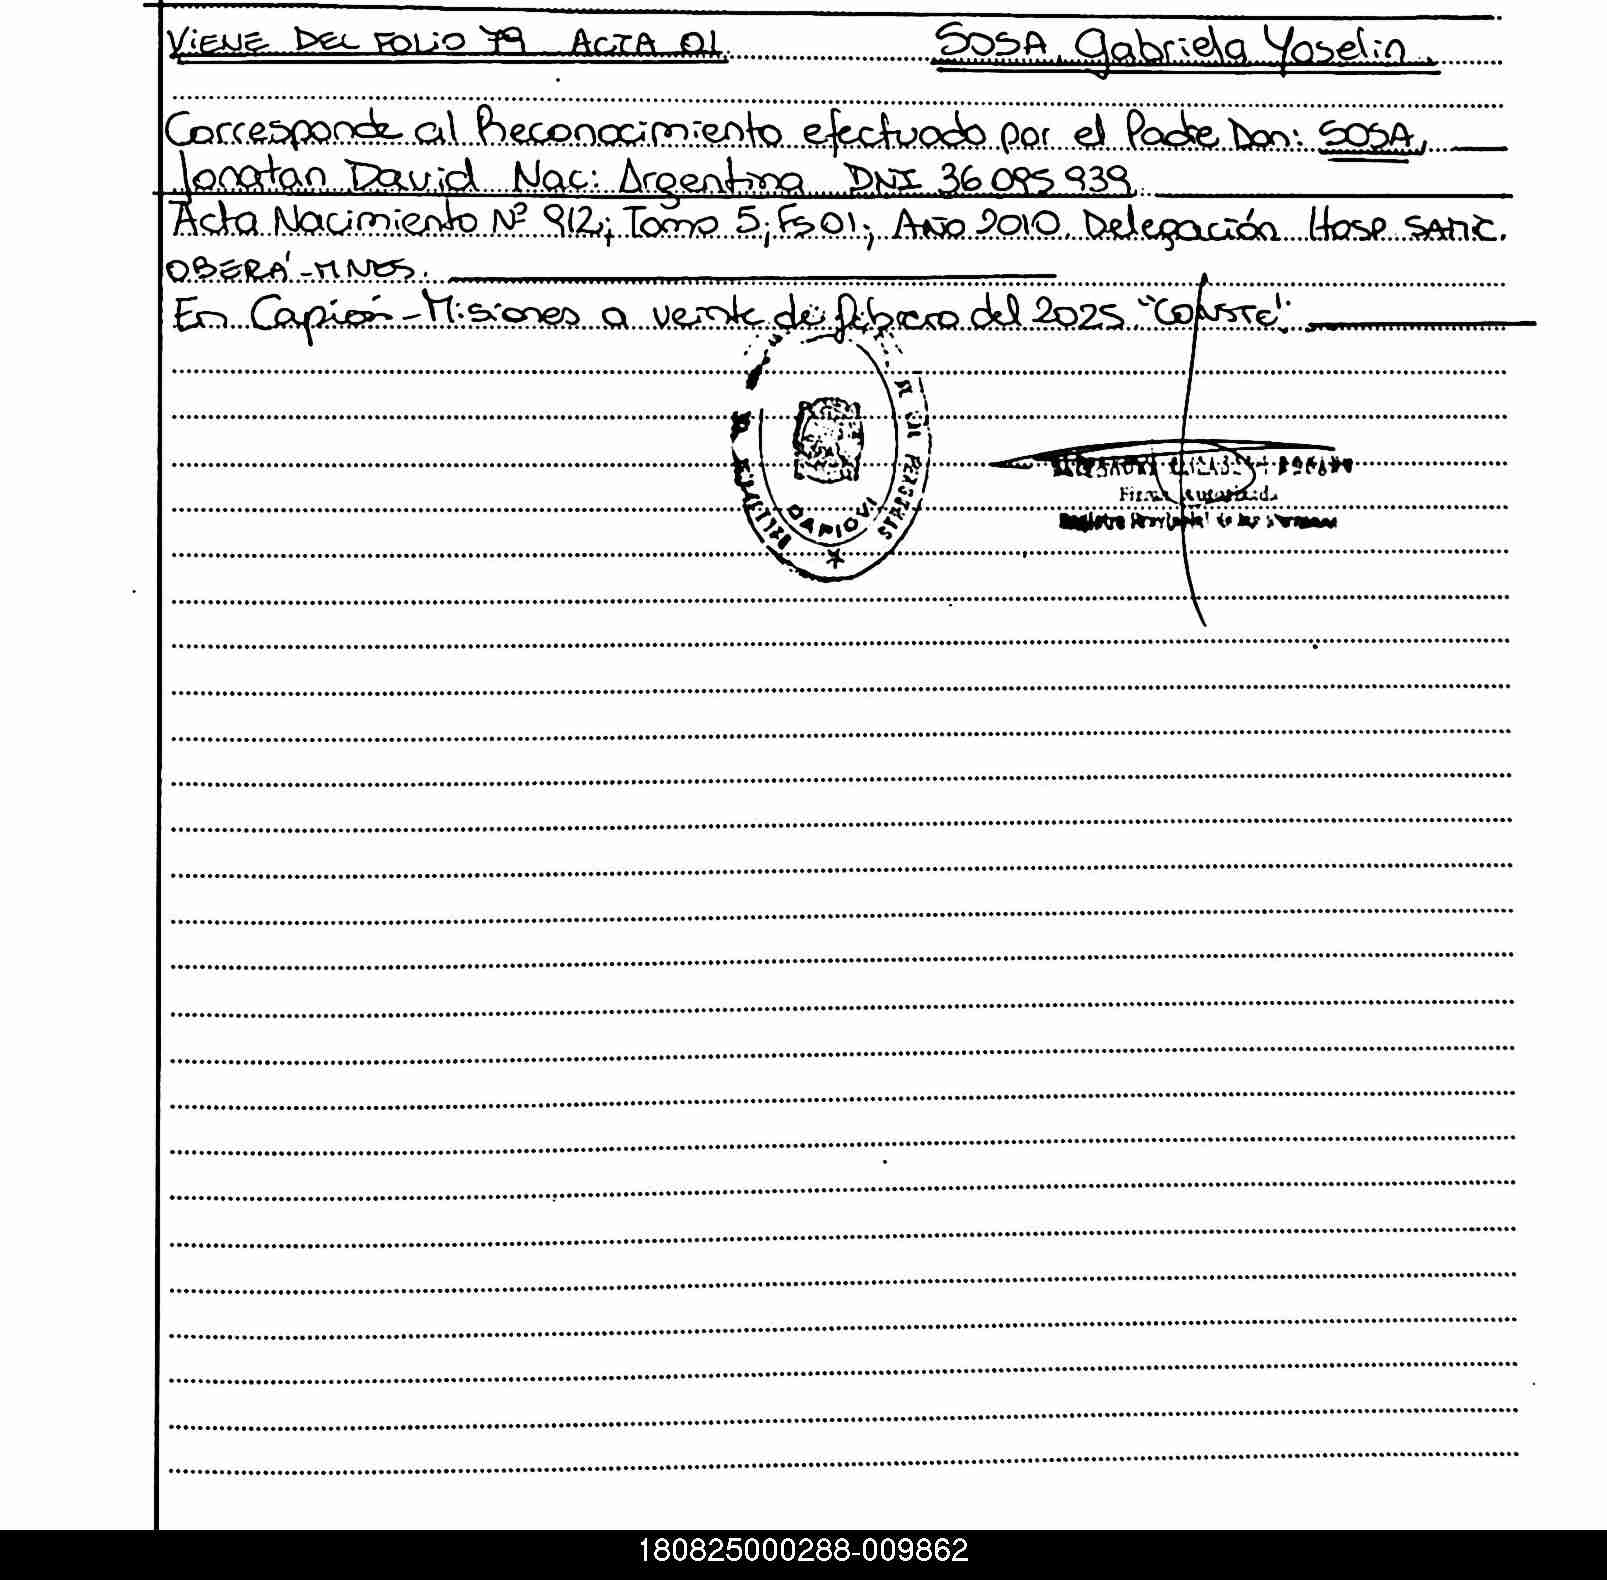 ViENE DEL FOLIO 79 ACTA 01. SOSA, Gabriela Yoselin.
Corresponde al Reconocimiento efectuado por el Padre Don: SOSA,
Jonatan David Nac: Argentina DNI 36 095 939.
Acta Nacimiento Nº 912; Tomo 5; Fs 01; Año 2010. Delegación Hosp SAMIC.
OBERÁ-MNES.
En Capioví-Misiones a veinte de febrero del 2025 "CONSTE".
CAPIOVI
DE LAS PERSONAS
Firma Autorizada
Registro Provincial de las Personas
180825000288-009862